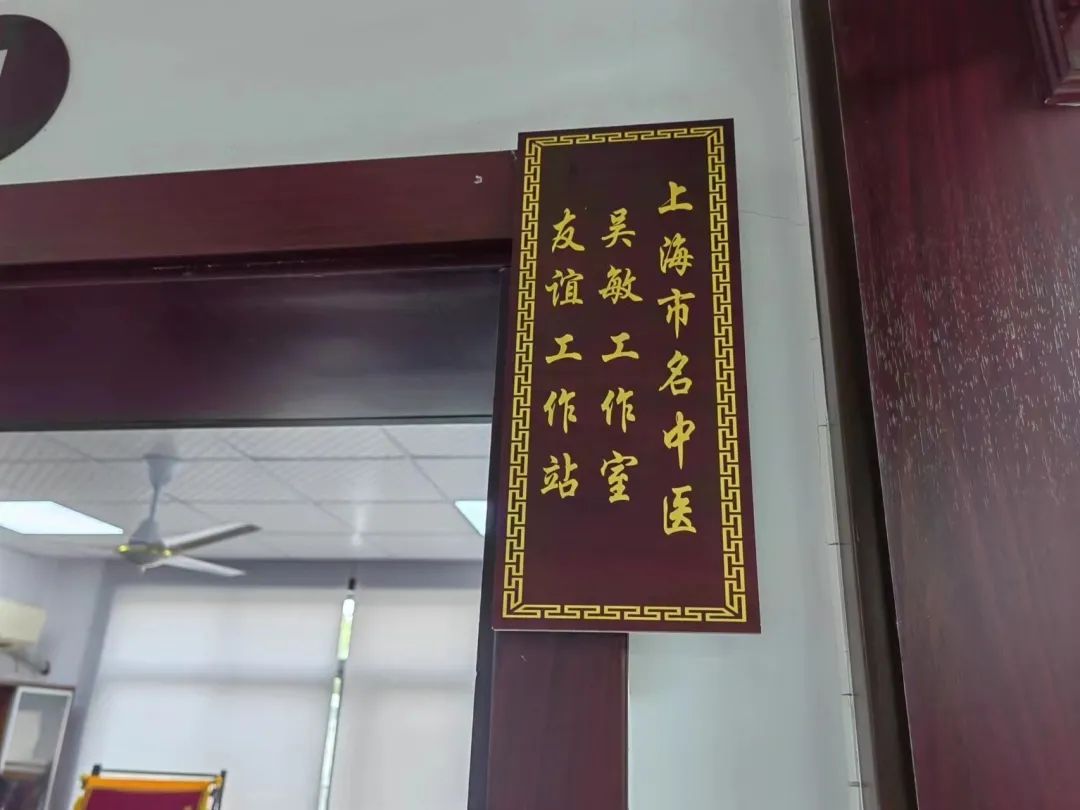 上海市名中医
吴敏工作室
友谊工作站